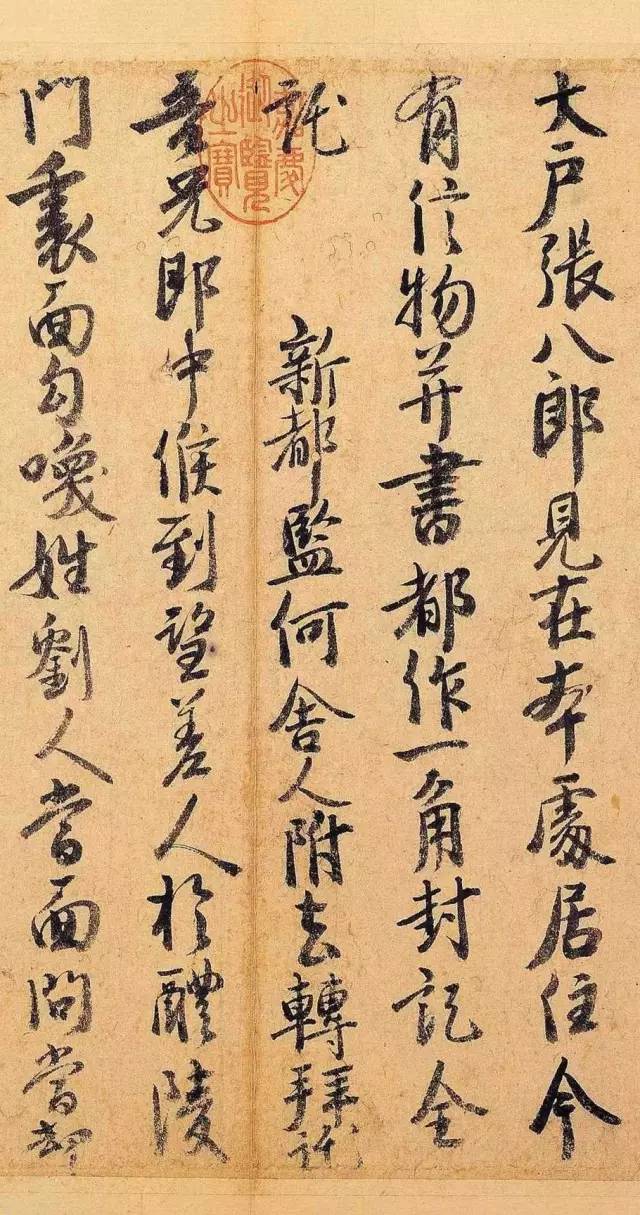 大戶張八郎見在本處居住今
有信物并書都作一角封記全
託 新都監何舍人附去轉拜託
吾兄郎中候到望差人於醴陵
門裏面勾喚姓劉人當面問當却
嘉慶御覽之寶